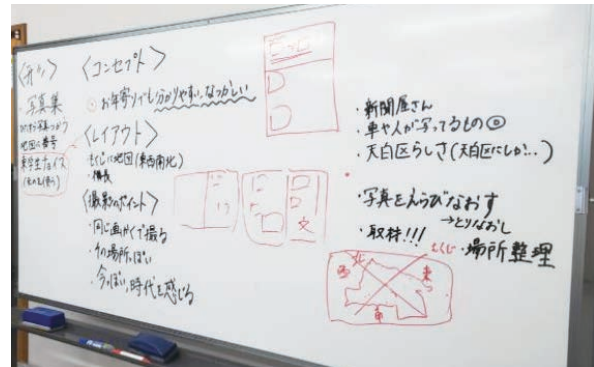 〈コンセプト〉
お年寄りでも分かりやすい、なつかしい
・写真集
地図に番号
〈レイアウト〉
もくじに地図(東西南北)
・横長
〈撮影のポイント〉
・同じ画かくで撮る
・その場所っぽい
・今っぽい、時代を感じる
文
・新聞屋さん
・車や人が写ってるもの
・天白区らしさ(天白区にしか…)
・写真をえらびなおす
→とりなおし
・取材!!!
もくじ
・場所整理
北
西
東
南